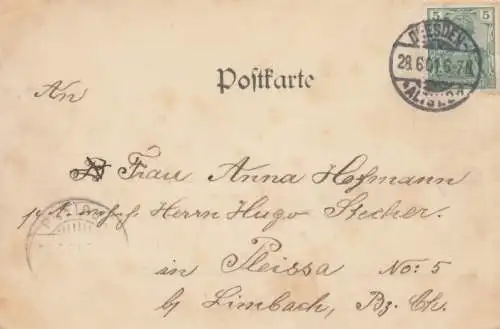 5 5
DRESDEN-
28.6.01.6-7
ALTST.
Postkarte
An
Frau Anna Hofmann
Herrn Hugo Stecher.
in Pleissa No: 5
by Limbach, Bz. Ch.